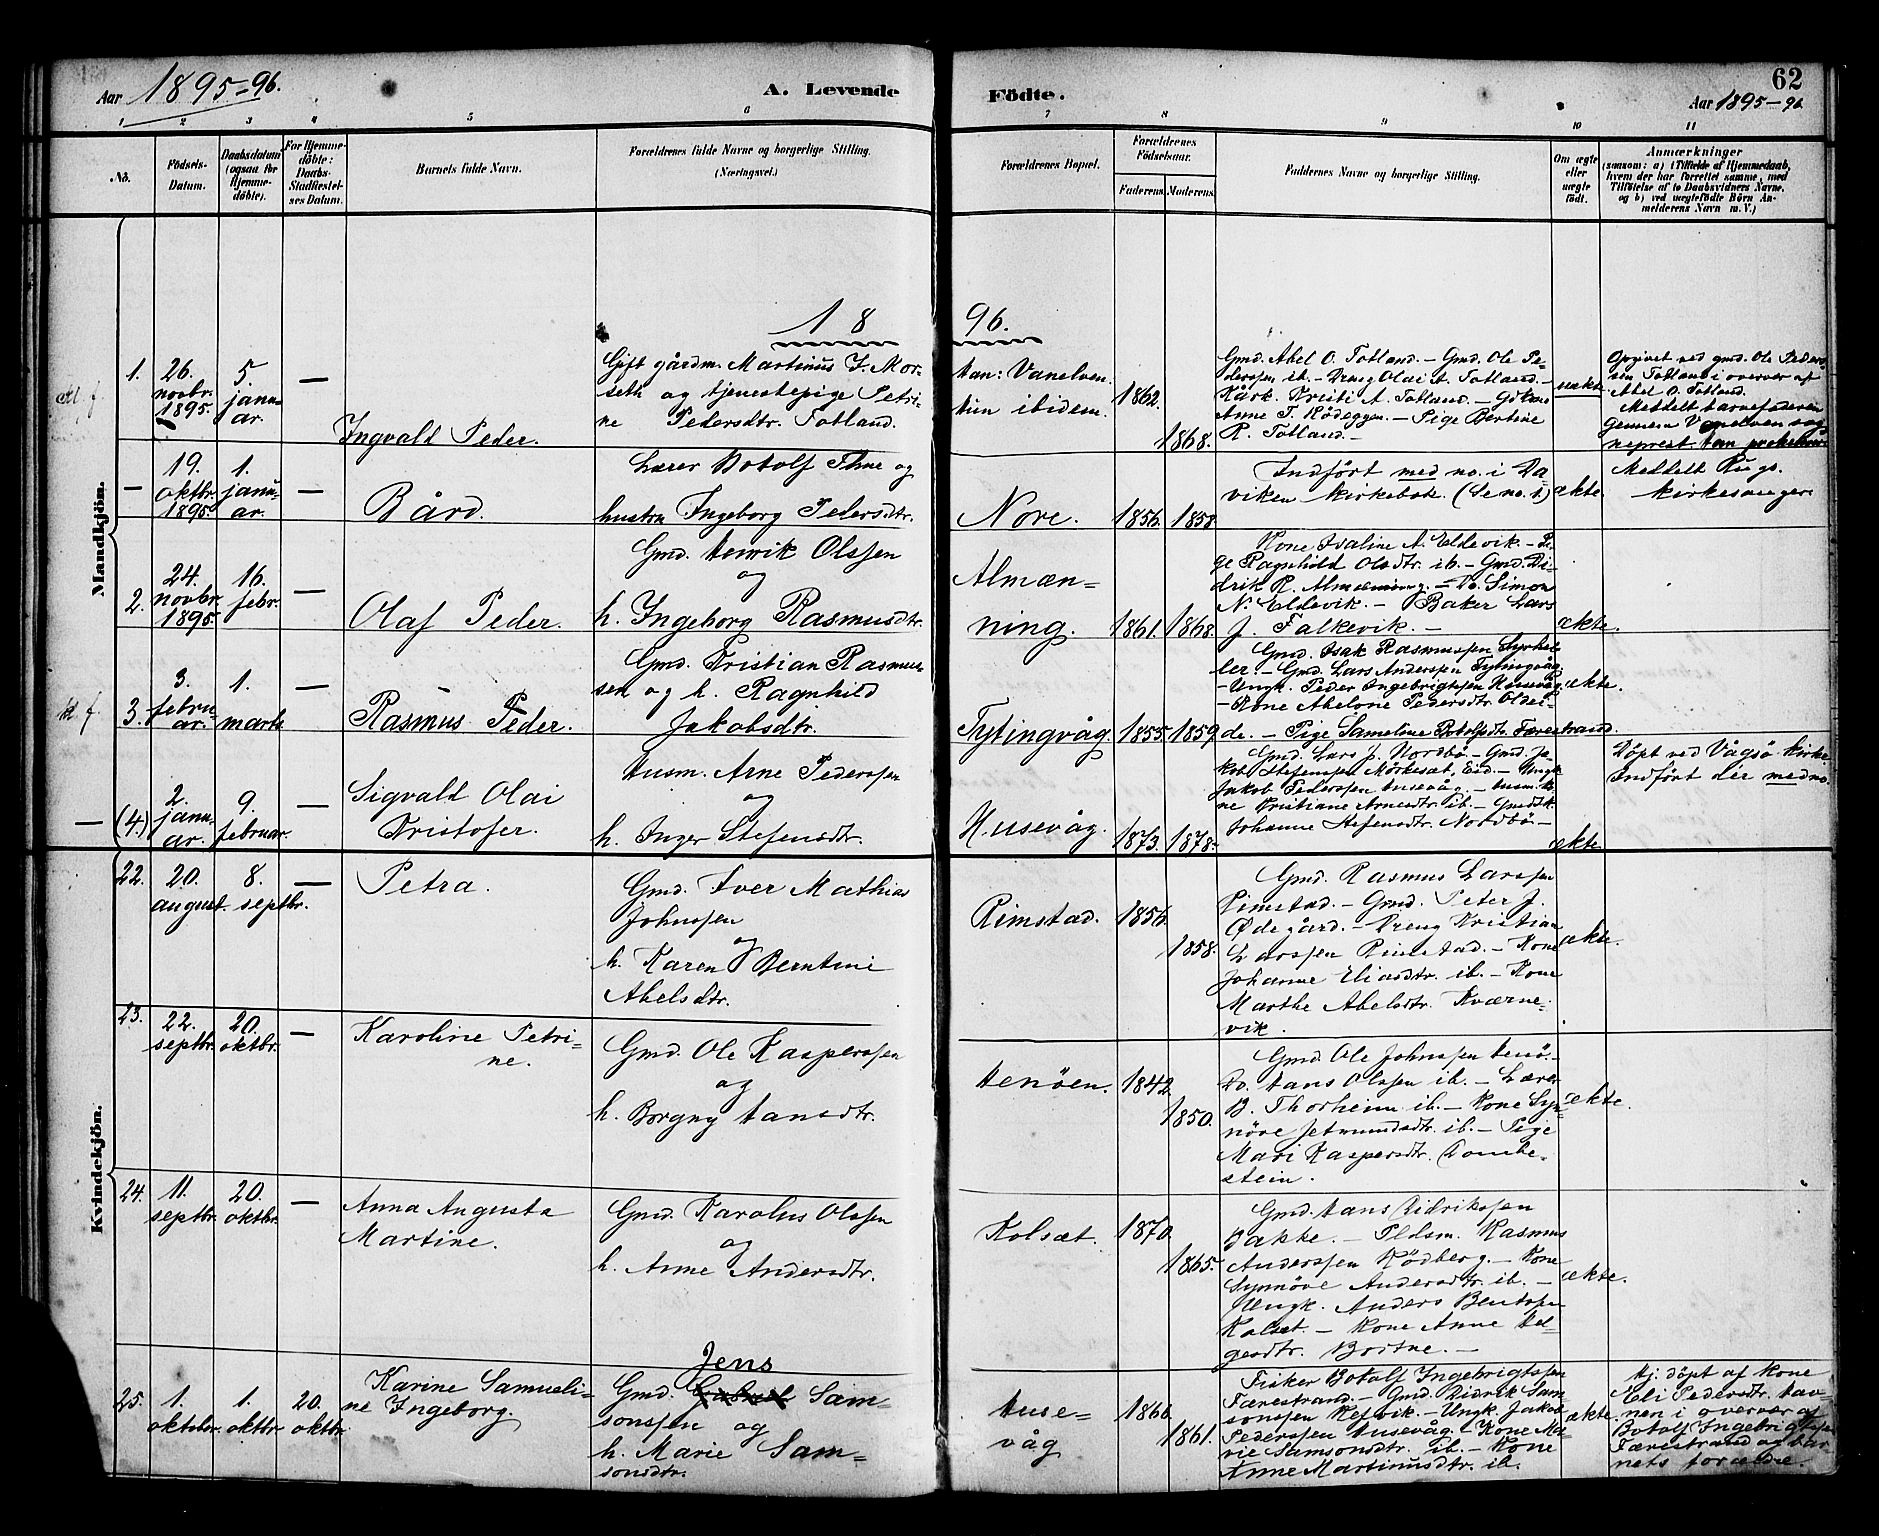 Aar 1895-96.
A. Levende
Födte.
62
Aar 1895-96
1 2 3 4 5 6 7 8 9 10 11
No.
Födsels-
Datum.
Daabsdatum
(ogsaa for
Hjemme-
döbte).
For Hjemme-
döbte:
Daabs-
Stadfæstel-
ses Datum.
Barnets fulde Navn.
Forældrenes fulde Navne og borgerlige Stilling.
(Næringsvei.)
Forældrenes Bopæl.
Forældrenes
Födselsaar.
Faderens.
Moderens.
Faddernes Navne og borgerlige Stilling.
Om ægte
eller
uægte
födt.
Anmærkninger
(saasom: a) i Tilfælde af Hjemmedaab,
hvem der har forrettet samme, med
Tilföielse af to Daabsvidners Navne,
og b) ved uægtefödte Börn An-
melderens Navn m. V.)
Mandkjön.
18
96.
1.
26.
novbr.
1895.
5.
janu-
ar.
—
Ingvald Peder.
Gift gårdm. Martinus J. Mor-
seth og tjenestepige Petri-
ne Pedersdtr. Totland.
Han: Vanelven.
Hun ibidem.
1862.
1868.
Gmd. Abel O. Totland. — Gmd. Ole Pe-
derssen ib. — Dreng Olai A. Totland. —
Kårk. Kristi A. Totland. —
Anne T. Rödeggen. — Pige Bertine
R. Totland. —
uækte.
Opgivet ved gmd. Ole Peders-
sen Totland i overvær af
Abel O. Totland.
Meddelt barnefaderen
gjennem Vanelven sog-
neprest.
—
19.
oktbr.
1895.
1.
janu-
ar.
—
Bård.
Lærer Botolf Thue og
hustru Ingeborg Pedersdtr.
Nore.
1856.
1858.
Indfört med no. i Da-
viken kirkebok. (Se no. 1)
ækte.
Meddelt Rugs.
kirkesanger.
2.
24.
novbr.
1895.
16.
febr.
—
Olaf Peder.
Gmd. Henrik Olssen
og
h. Ingeborg Rasmusdtr.
Almæn-
ning.
1861.
1868.
Kone Isaline A. Eldevik. — Pi-
ge Ragnhild Olsdtr. ib. — Gmd. Di-
drik R. Almænning. — Do. Simon
N. Eldevik. — Baker Lars
J. Falkevik. —
ækte.
3.
3.
febru-
ar.
1.
marts
—
Rasmus Peder.
Gmd. Kristian Rasmus-
sen og h. Ragnhild
Jakobsdtr.
Tytingvåg.
1855.
1859.
Gmd. Isak Rasmussen Hyrkel-
ler. — Gmd. Lars Anderssen Tytingvåg
— Ungk. Peder Ingebrigtssen Husevåg.
— Kone Abelone Pedersdtr. Oldei-
de. — Pige Sameline Botolfsdtr. Færestrand.
ækte.
(4.)
2.
janu-
ar.
9.
februar.
—
Sigvald Olai
Kristofer.
Husm. Arne Pederssen
og
h. Inger Stefensdtr.
Husevåg.
1873.
1878.
Gmd. Lars J. Nordbö — Gmd. Ja-
kob Stefenssen Mörkesæt, Eid. — Ungk.
Jakob Pederssen Husevåg. — Husm. ko-
ne Kristiane Arnesdtr. ib. — Gmdsdtr.
Johanne Stefensdtr. Nordbö —
ækte
Döpt ved Vågsö kirke.
Indfört der med no.
Kvindekjön.
22.
20.
august.
8.
septbr.
—
Petra.
Gmd. Iver Mathias
Johnssen
og
h. Karen Berntine
Abelsdtr.
Rimstad.
1856.
1858.
Gmd. Rasmus Larssen
Rimstad. — Gmd. Peter J.
Ödegård. — Dreng Kristian
Larssen Rimstad. — Kone
Johanne Eliasdtr. ib. — Kone
Marthe Abelsdtr. Kværne-
vik.
ækte.
23.
22.
septbr.
20.
oktbr.
—
Karoline Petri-
ne.
Gmd. Ole Kasperssen
og
h. Borgny Hansdtr.
Henöen.
1842.
1850.
Gmd. Ole Johnssen Henö. —
Do. Hans Olssen ib. — Lærer
B. Thorheim ib. — Kone Syn-
növe Jetmundsdtr. ib. — Pige
Mari Kaspersdtr. Dombe-
stein.
ækte.
24.
11.
septbr.
20.
oktbr.
—
Anna Augusta
Martine.
Gmd. Karolus Olssen
og
h. Anne Andersdtr.
Kolsæt.
1870.
1865.
Gmd. Hans Didrikssen
Bakke. — Pldsm. Rasmus
Anderssen Rödberg. — Kone
Synnöve Andersdtr. ib. —
Ungk. Anders Bentssen
Kolsæt. — Kone Anne Hel-
gesdtr. Bortne. —
ækte.
25.
1.
oktober.
1.
oktbr.
20.
oktbr.
Karine Samueli-
ne Ingeborg.
Jens
Gmd. Sam-
sonssen og
h. Marie Sam-
sonsdtr.
Huse-
våg
1866.
1861.
Fisker Botolf Ingebrigtssen
Færestrand. — Gmd. Didrik Sam-
sonssen Refvik. — Ungk. Jakob
Pederssen Husevåg. — Kone Ma-
rie Samsonsdtr. ib. — Kone
Anne Martinusdtr. ib.
ækte.
Hj. döpt af kone
Eli Pedersdtr. Hav-
nen i overvær af
Botolf Ingebrigtssen
Færestrand og bar-
nets forældre.